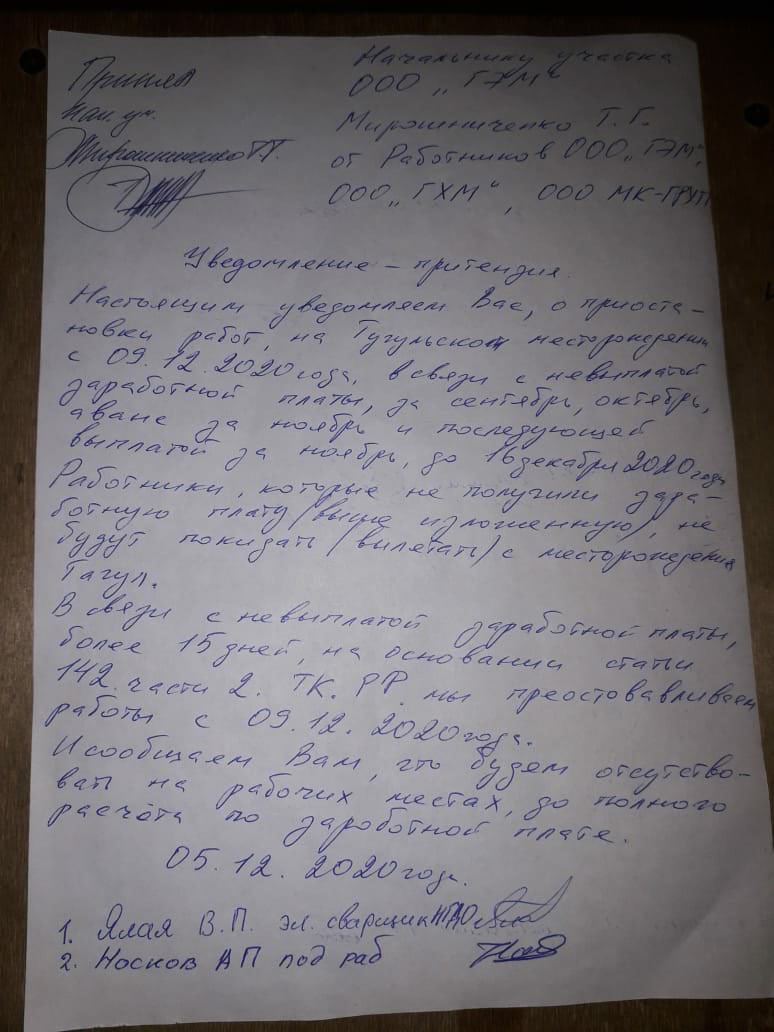 Принял
нач. уч.
Мирошниченко Т.Г.
Начальнику участка
ООО „ГЭМ“
Мирошниченко Т. Г.
от Работников ООО „ГЭМ“,
ООО „ГХМ“, ООО МК-ГРУП
Уведомление – притендия.
Настоящим уведомляем Вас, о приоста-
новки работ, на Тугульском месторождении
с 09.12.2020 года, в связи с невыплатой
заработной платы, за сентябрь, октябрь,
аванс за ноябрь и последующей
выплатой за ноябрь, до 16 декабря 2020 года
Работники, которые не получили зара-
ботную плату (выше изложенную), не
будут покидать (вылетать) с месторождения
Тагул.
В связи с невыплатой заработной платы,
более 15 дней, на основании статьи
142. части 2. ТК. РФ. мы преоставливаем
работы с 09.12.2020 года.
И сообщаем Вам, что будем отсутство-
вать на рабочих местах, до полного
расчёта по зароботной плате.
05.12.2020 года.
1. Ялая В.П. эл. сварщик
2. Носков АП под раб